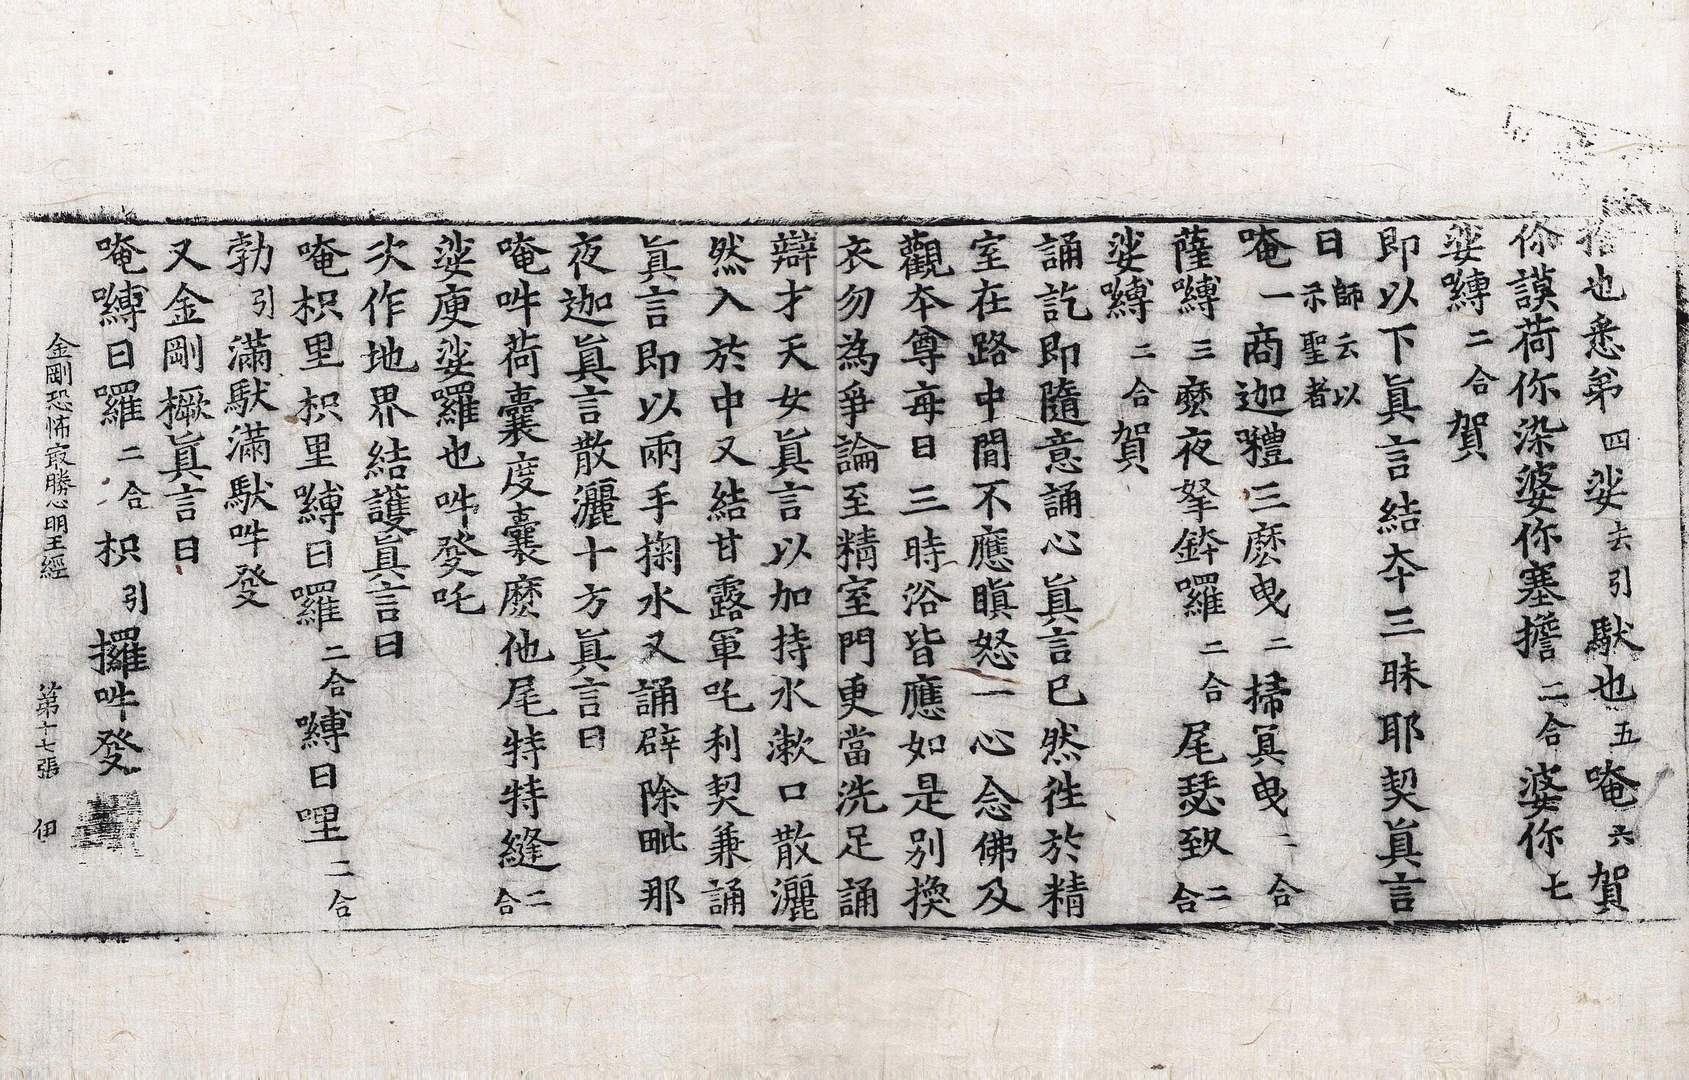 捨也悉第四娑去引馱也五唵六賀
你謨荷你染婆你塞擔二合婆你七
娑嚩二合賀
即以下真言結本三昧耶契真言
曰師云以示聖者
唵一商迦𡃤三麼曳二掃㝠曳二合
薩嚩三麼夜拏鉢羅二合尾瑟䟦二合
娑嚩二合賀
誦訖即隨意誦心真言已然往於精
室在路中間不應瞋怒一心念佛及
觀本尊每日三時浴皆應如是別換
衣勿為爭論至精室門更當洗足誦
辯才天女真言以加持水漱口散灑
然入於中又結甘露軍吒利契兼誦
真言即以兩手掬水又誦辟除毗那
夜迦真言散灑十方真言曰
唵吽荷曩度曩麼他尾特特縫二合
娑庾娑羅也吽發吒
次作地界結護真言曰
唵枳里枳里嚩日囉二合嚩日哩二合
勃引滿馱滿馱吽發
又金剛橛真言曰
唵嚩日囉二合枳引攞吽發
金剛恐怖最勝心明王經 第十七張 伊